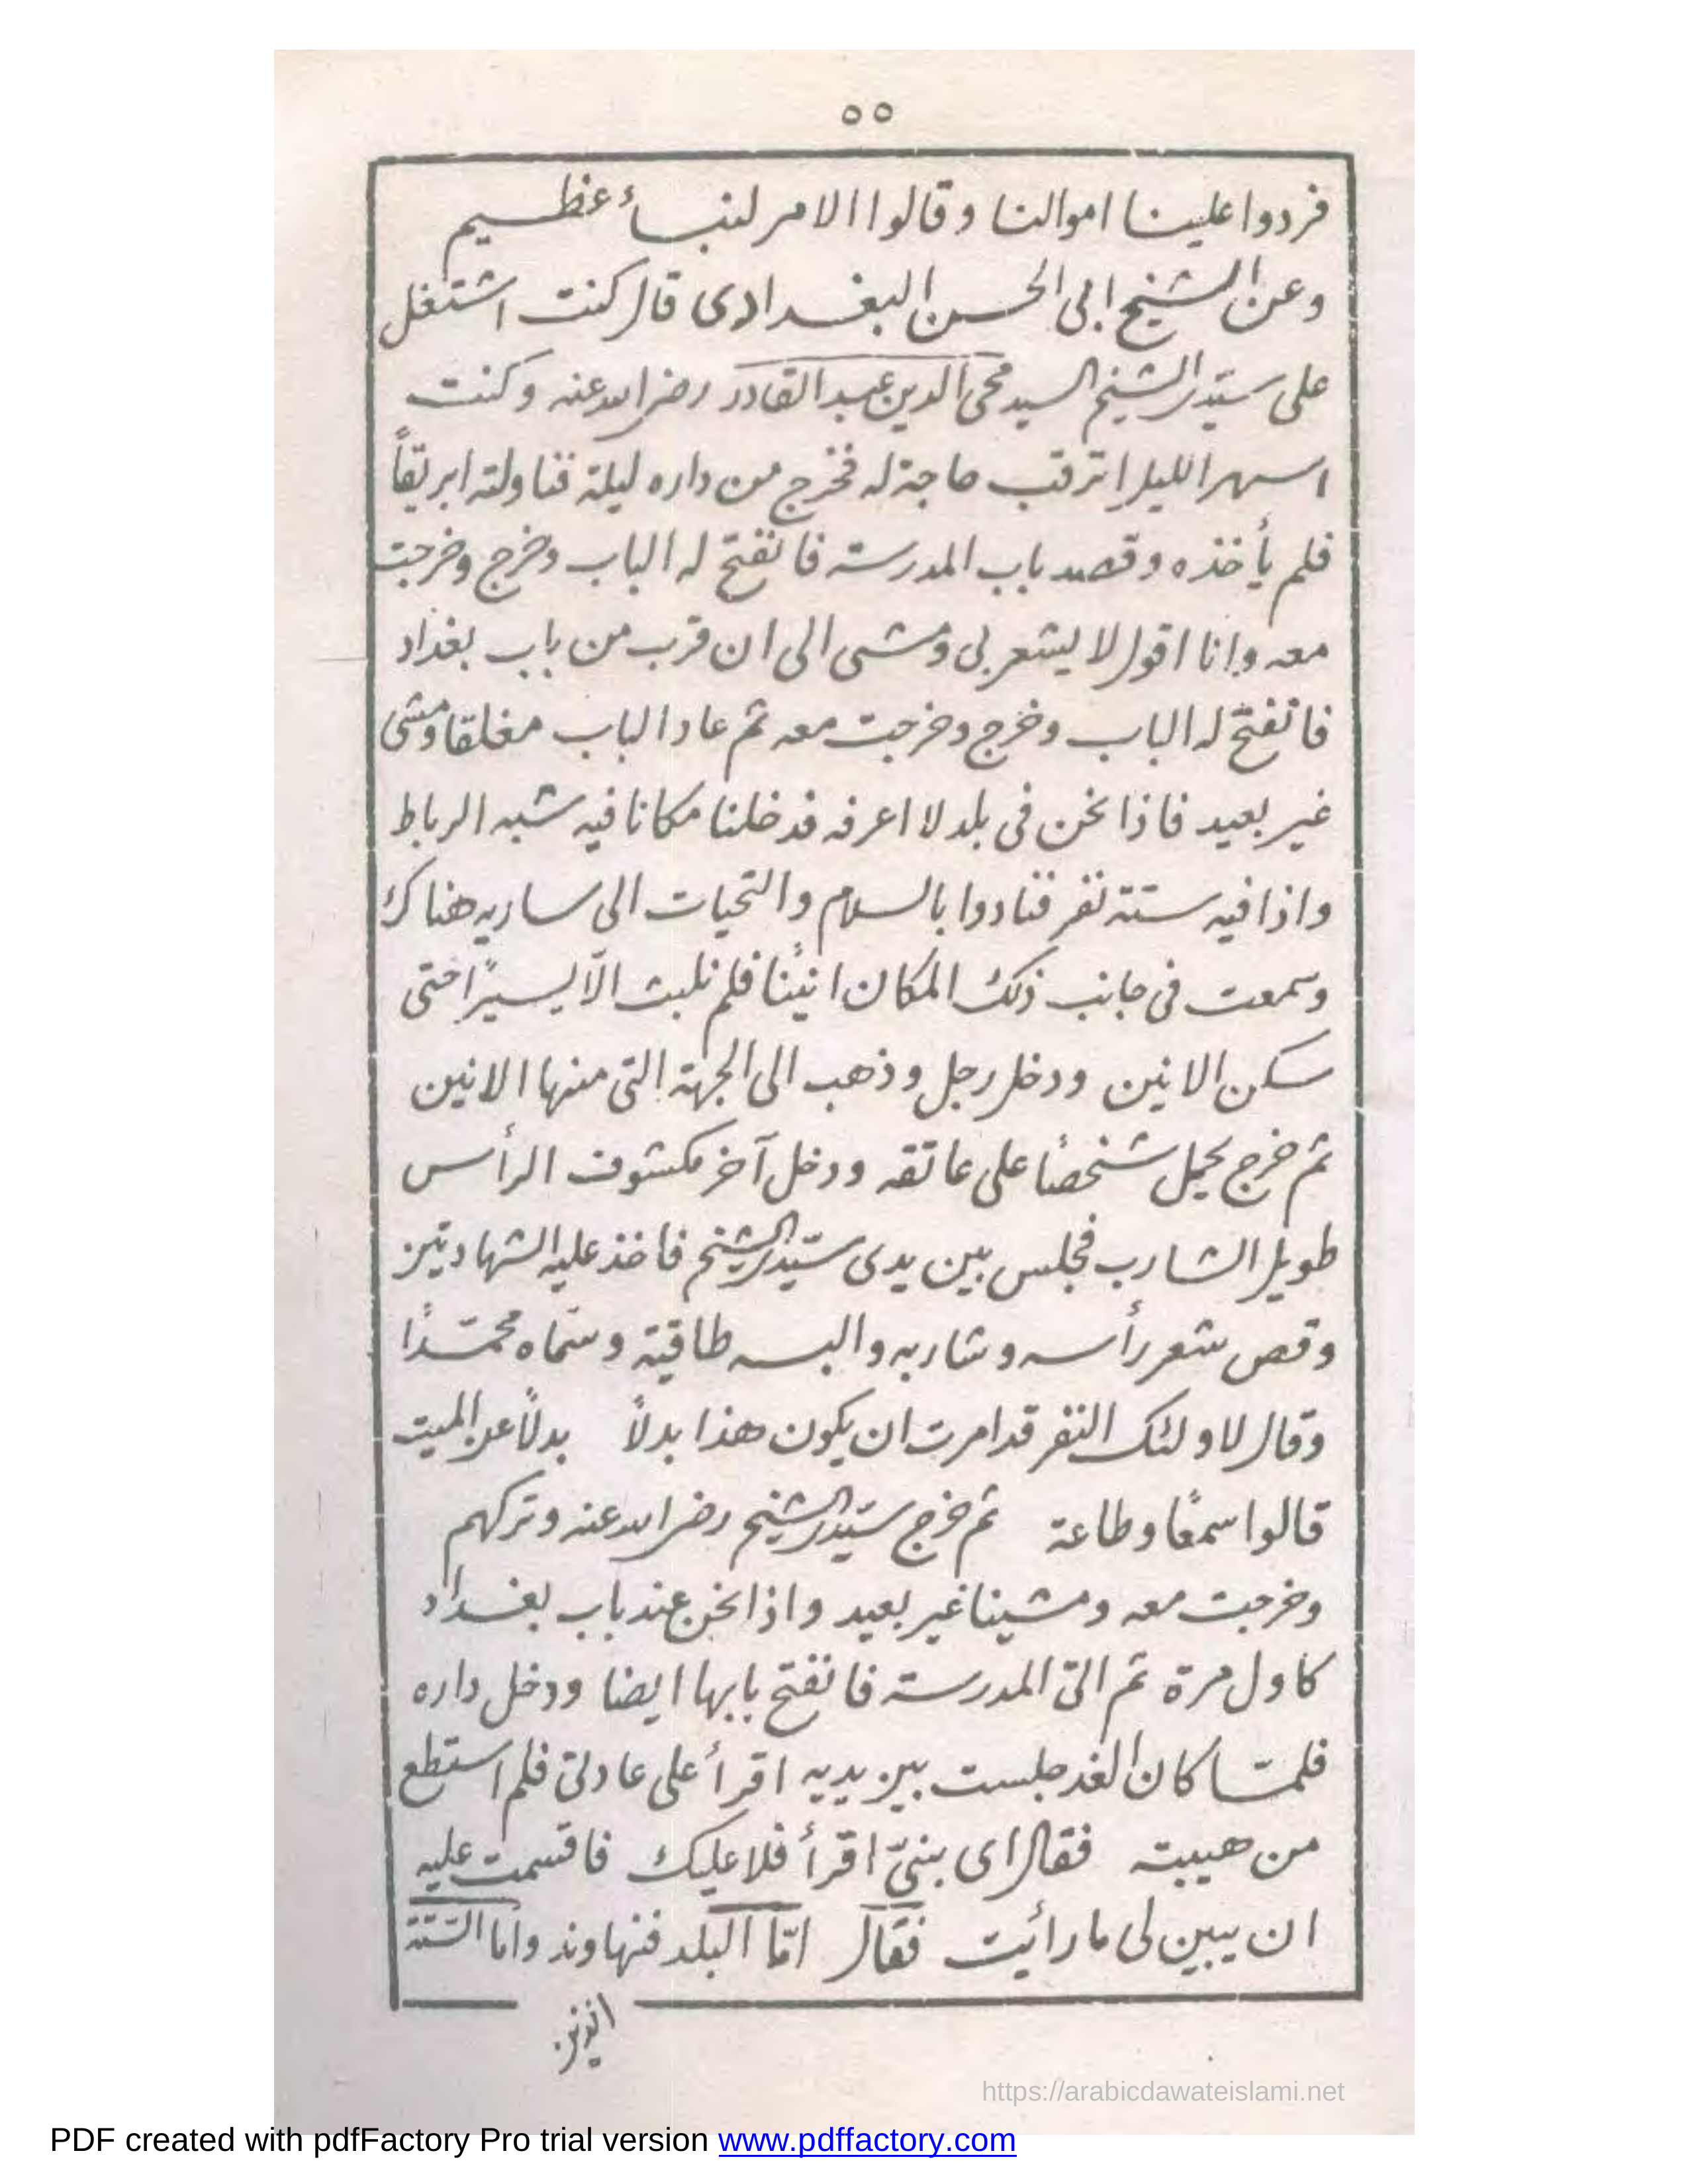 ٥٥
فردوا علينا اموالنا وقالوا الامر لنبأ عظيم
وعن الشيخ ابى الحسن البغدادى قال كنت اشتغل
على سيّدى الشيخ السيد محى الدين عبد القادر رضى الله عنه وكنت
اسهر الليل اترقب حاجة له فخرج من داره ليلة فناولته ابريقاً
فلم يأخذه وقصد باب المدرسة فانفتح له الباب وخرج وخرجت
معه وانا اقول لا يشعر بى ومشى الى ان قرب من باب بغداد
فانفتح له الباب وخرج وخرجت معه ثم عاد الباب مغلقا ومشى
غير بعيد فاذا نحن فى بلد لا اعرفه فدخلنا مكانا فيه شبه الرباط
واذا فيه ستة نفر فنادوا بالسلام والتحيات الى ساريه هناك
وسمعت فى جانب ذلك المكان انينًا فلم نلبث الّا يسيرًا حتى
سكن الانين ودخل رجل وذهب الى الجهة التى منها الانين
ثم خرج يحمل شخصًا على عاتقه ودخل آخر مكشوف الرأس
طويل الشارب فجلس بين يدى سيّدى الشيخ فاخذ عليه الشهادتين
وقص شعر رأسه وشاربه والبسه طاقية وسمّاه محمّدًا
وقال لاولئك النفر قد امرت ان يكون هذا بدلاً بدلاً عن الميت
قالوا سمعًا وطاعة ثم خرج سيّدى الشيخ رضى الله عنه وتركهم
وخرجت معه ومشينا غير بعيد واذا نحن عند باب بغداد
كاول مرة ثم اتى المدرسة فانفتح بابها ايضا ودخل داره
فلمّا كان الغد جلست بين يديه اقرأ على عادتى فلم استطع
من هيبته فقال اى بنىّ اقرأ فلا عليك فاقسمت عليه
ان يبين لى ما رأيت فقال امّا البلد فنهاوند واما الستّة
الذين
https://arabicdawateislami.net
PDF created with pdfFactory Pro trial version www.pdffactory.com